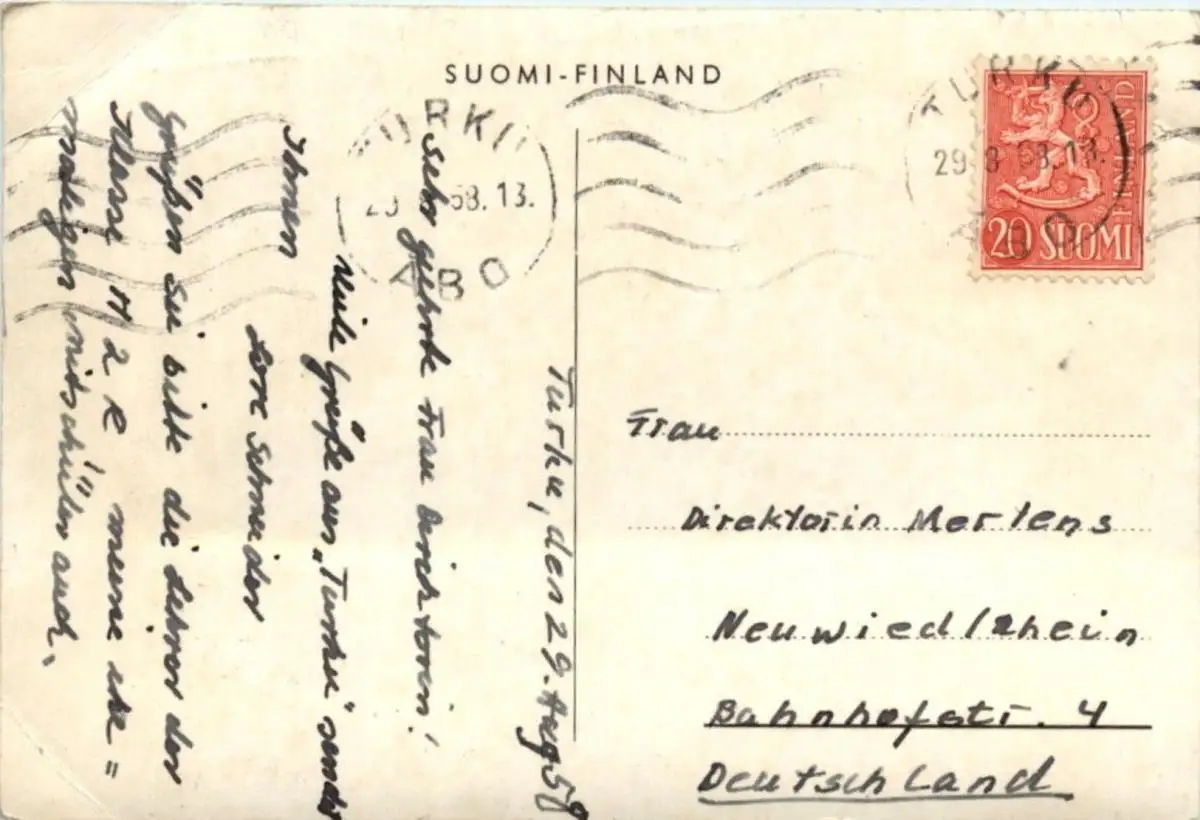 SUOMI-FINLAND
TURKU
29.8.58.13.
ÅBO
TURKU
58.13.
ÅBO
FINLAND
20 SUOMI
Turku, den 29. Aug 58
Sehr geehrte Frau Direktorin!
Viele Grüße aus „Turku" sendet
Ihnen
Lore Schneider
Grüßen Sie bitte die Lehrer der
Klasse M 2 R meine
maligen Mitschüler auch.
Frau
Direktorin Mertens
Neuwied/Rhein
Bahnhofstr. 4
Deutschland